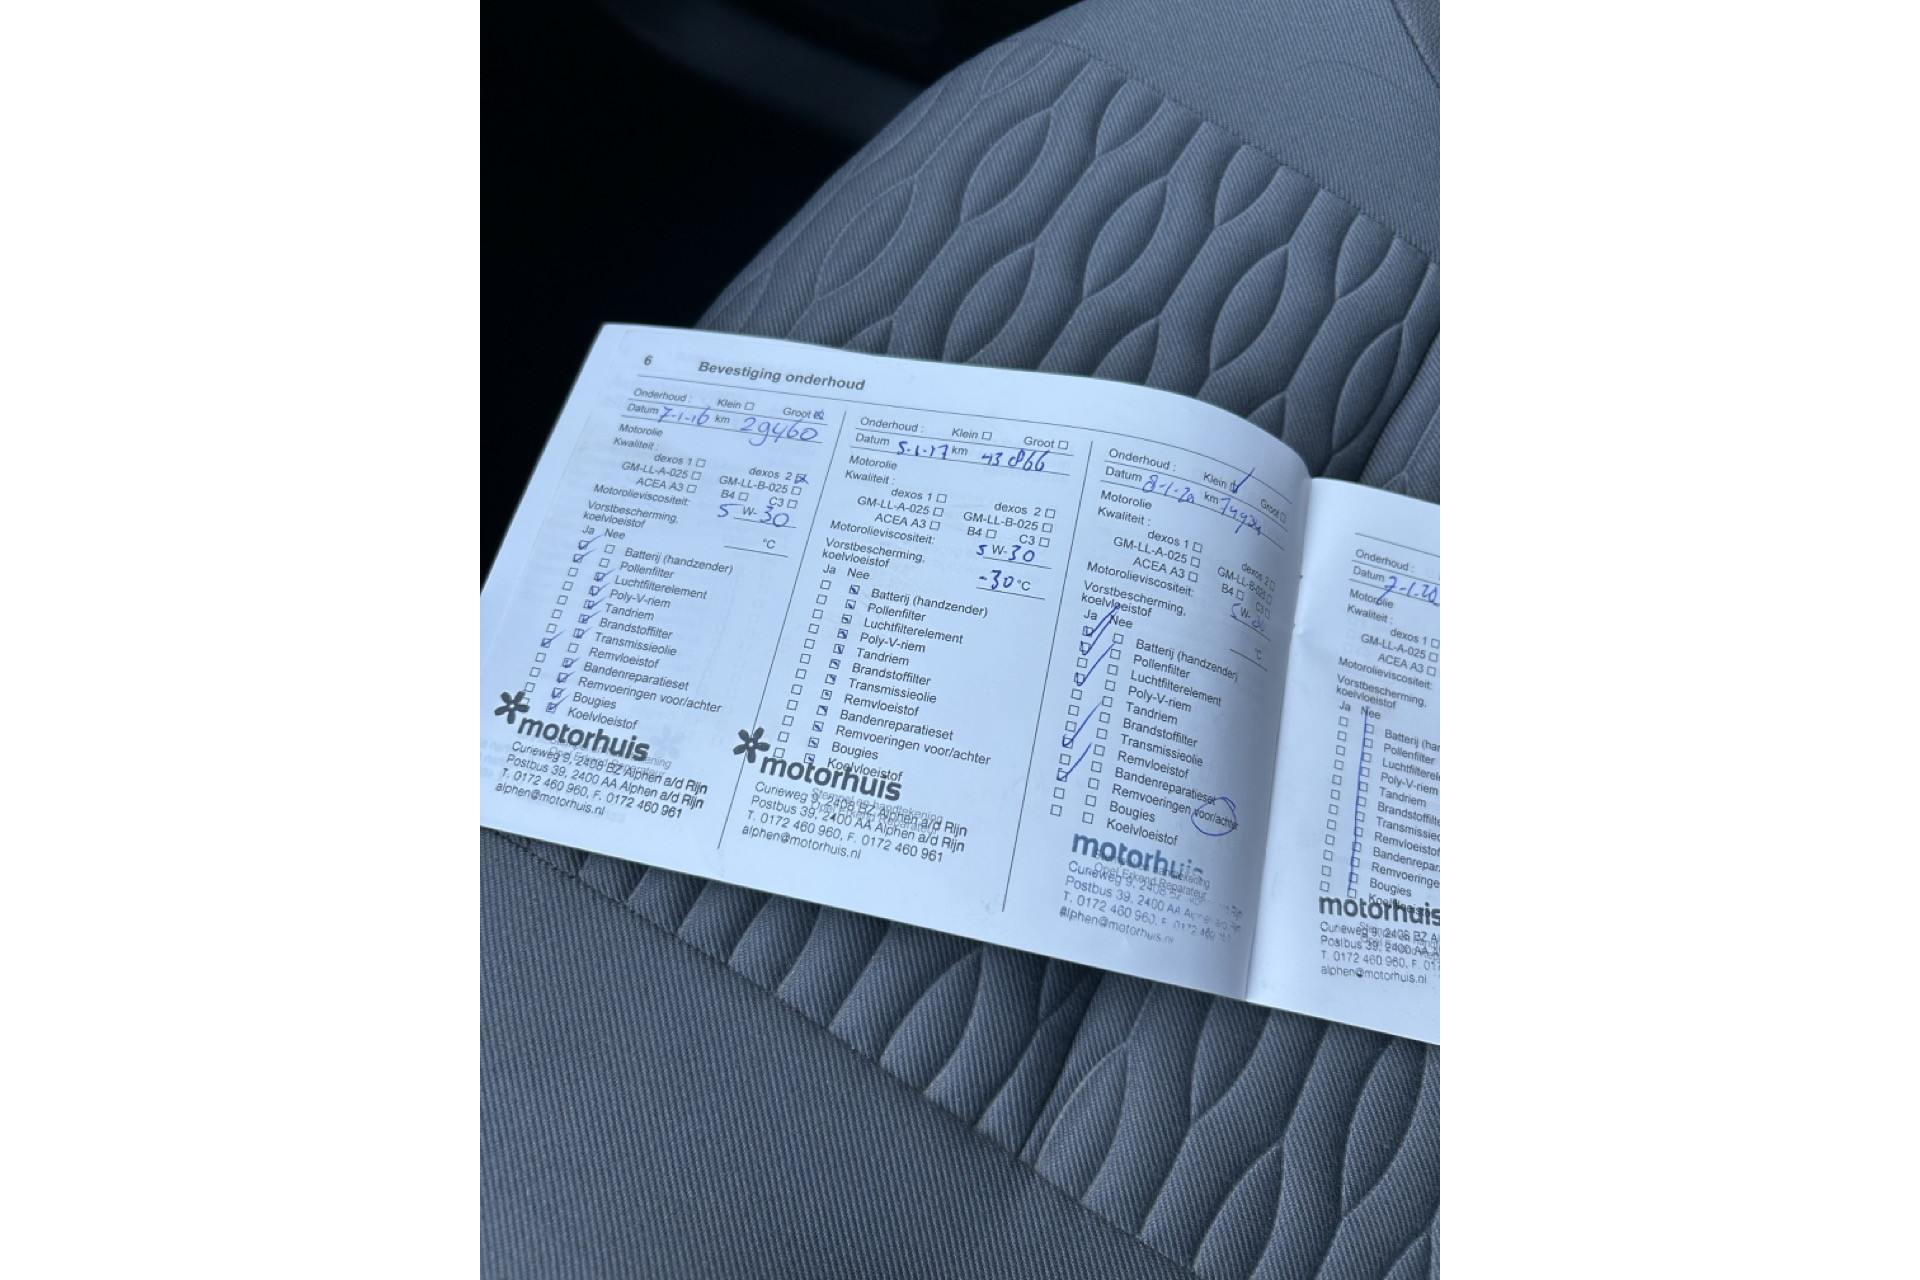 6 Bevestiging onderhoud
Onderhoud : Klein Groot
Datum 7-1-16 km 29460
Motorolie
Kwaliteit :
dexos 1 dexos 2
GM-LL-A-025 GM-LL-B-025
ACEA A3 B4 C3
Motorolieviscositeit: 5 W- 30
Vorstbescherming,
koelvloeistof °C
Ja Nee
Batterij (handzender)
Pollenfilter
Luchtfilterelement
Poly-V-riem
Tandriem
Brandstoffilter
Transmissieolie
Remvloeistof
Bandenreparatieset
Remvoeringen voor/achter
Bougies
Koelvloeistof
motorhuis
Curieweg 9, 2408 BZ Alphen a/d Rijn
Postbus 39, 2400 AA Alphen a/d Rijn
T. 0172 460 960, F. 0172 460 961
alphen@motorhuis.nl
Onderhoud : Klein Groot
Datum 5-1-17 km 43866
Motorolie
Kwaliteit :
dexos 1 dexos 2
GM-LL-A-025 GM-LL-B-025
ACEA A3 B4 C3
Motorolieviscositeit: 5 W- 30
Vorstbescherming,
koelvloeistof -30 °C
Ja Nee
Batterij (handzender)
Pollenfilter
Luchtfilterelement
Poly-V-riem
Tandriem
Brandstoffilter
Transmissieolie
Remvloeistof
Bandenreparatieset
Remvoeringen voor/achter
Bougies
Koelvloeistof
motorhuis
Stempel en handtekening
Opel Erkend Reparateur
Curieweg 9, 2408 BZ Alphen a/d Rijn
Postbus 39, 2400 AA Alphen a/d Rijn
T. 0172 460 960, F. 0172 460 961
alphen@motorhuis.nl
Onderhoud : Klein Groot
Datum 8-1-20 km
Motorolie
Kwaliteit :
dexos 1 dexos 2
GM-LL-A-025 GM-LL-B-025
ACEA A3 B4 C3
Motorolieviscositeit: 5 W-
Vorstbescherming,
koelvloeistof °C
Ja Nee
Batterij (handzender)
Pollenfilter
Luchtfilterelement
Poly-V-riem
Tandriem
Brandstoffilter
Transmissieolie
Remvloeistof
Bandenreparatieset
Remvoeringen voor/achter
Bougies
Koelvloeistof
motorhuis
Stempel en handtekening
Opel Erkend Reparateur
Curieweg 9, 2408 BZ
Postbus 39, 2400 AA Alphen a/d Rijn
T. 0172 460 960, F. 0172 460
alphen@motorhuis.nl
Onderhoud :
Datum 7-1-20
Motorolie
Kwaliteit :
dexos 1
GM-LL-A-025
ACEA A3
Motorolieviscositeit:
Vorstbescherming,
koelvloeistof
Ja Nee
Batterij (har
Pollenfilter
Luchtfilterel
Poly-V-riem
Tandriem
Brandstoffil
Transmissie
Remvloeistof
Bandenrepar
Remvoeringe
Bougies
Koelvloeistof
motorhuis
Curieweg 9, 2408 BZ A
Postbus 39, 2400 AA A
T. 0172 460 960, F. 017
alphen@motorhuis.nl